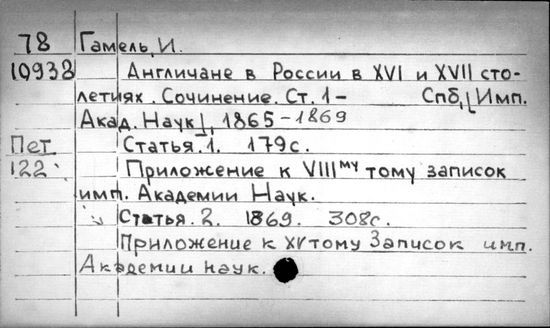 78 Гамель, И.
10938 Англичане в России в XVI и XVII сто-
летиях. Сочинение. Ст. 1- Спб, [Имп.
Акад. Наук], 1865-1869
Пет. Статья. 1. 179с.
122 Приложение к VIIIму тому записок
имп. Академии Наук.
Статья. 2. 1869. 308с.
Приложение к XV тому Записок имп.
Академии наук.